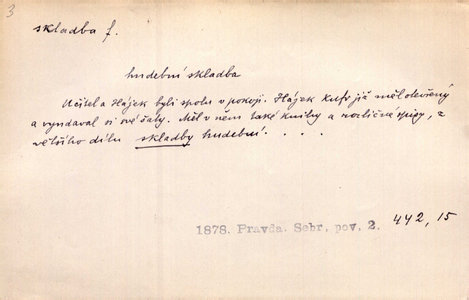 3
skladba f.
hudební skladba
Učitel a Hájek byli spolu v pokoji. Hájek kufr již měl otevřený
a vyndaval si své šaty. Měl v něm také knihy a rozličné spisy, z
většího dílu skladby hudební. . . .
1878. Pravda. Sebr. pov. 2. 442, 15